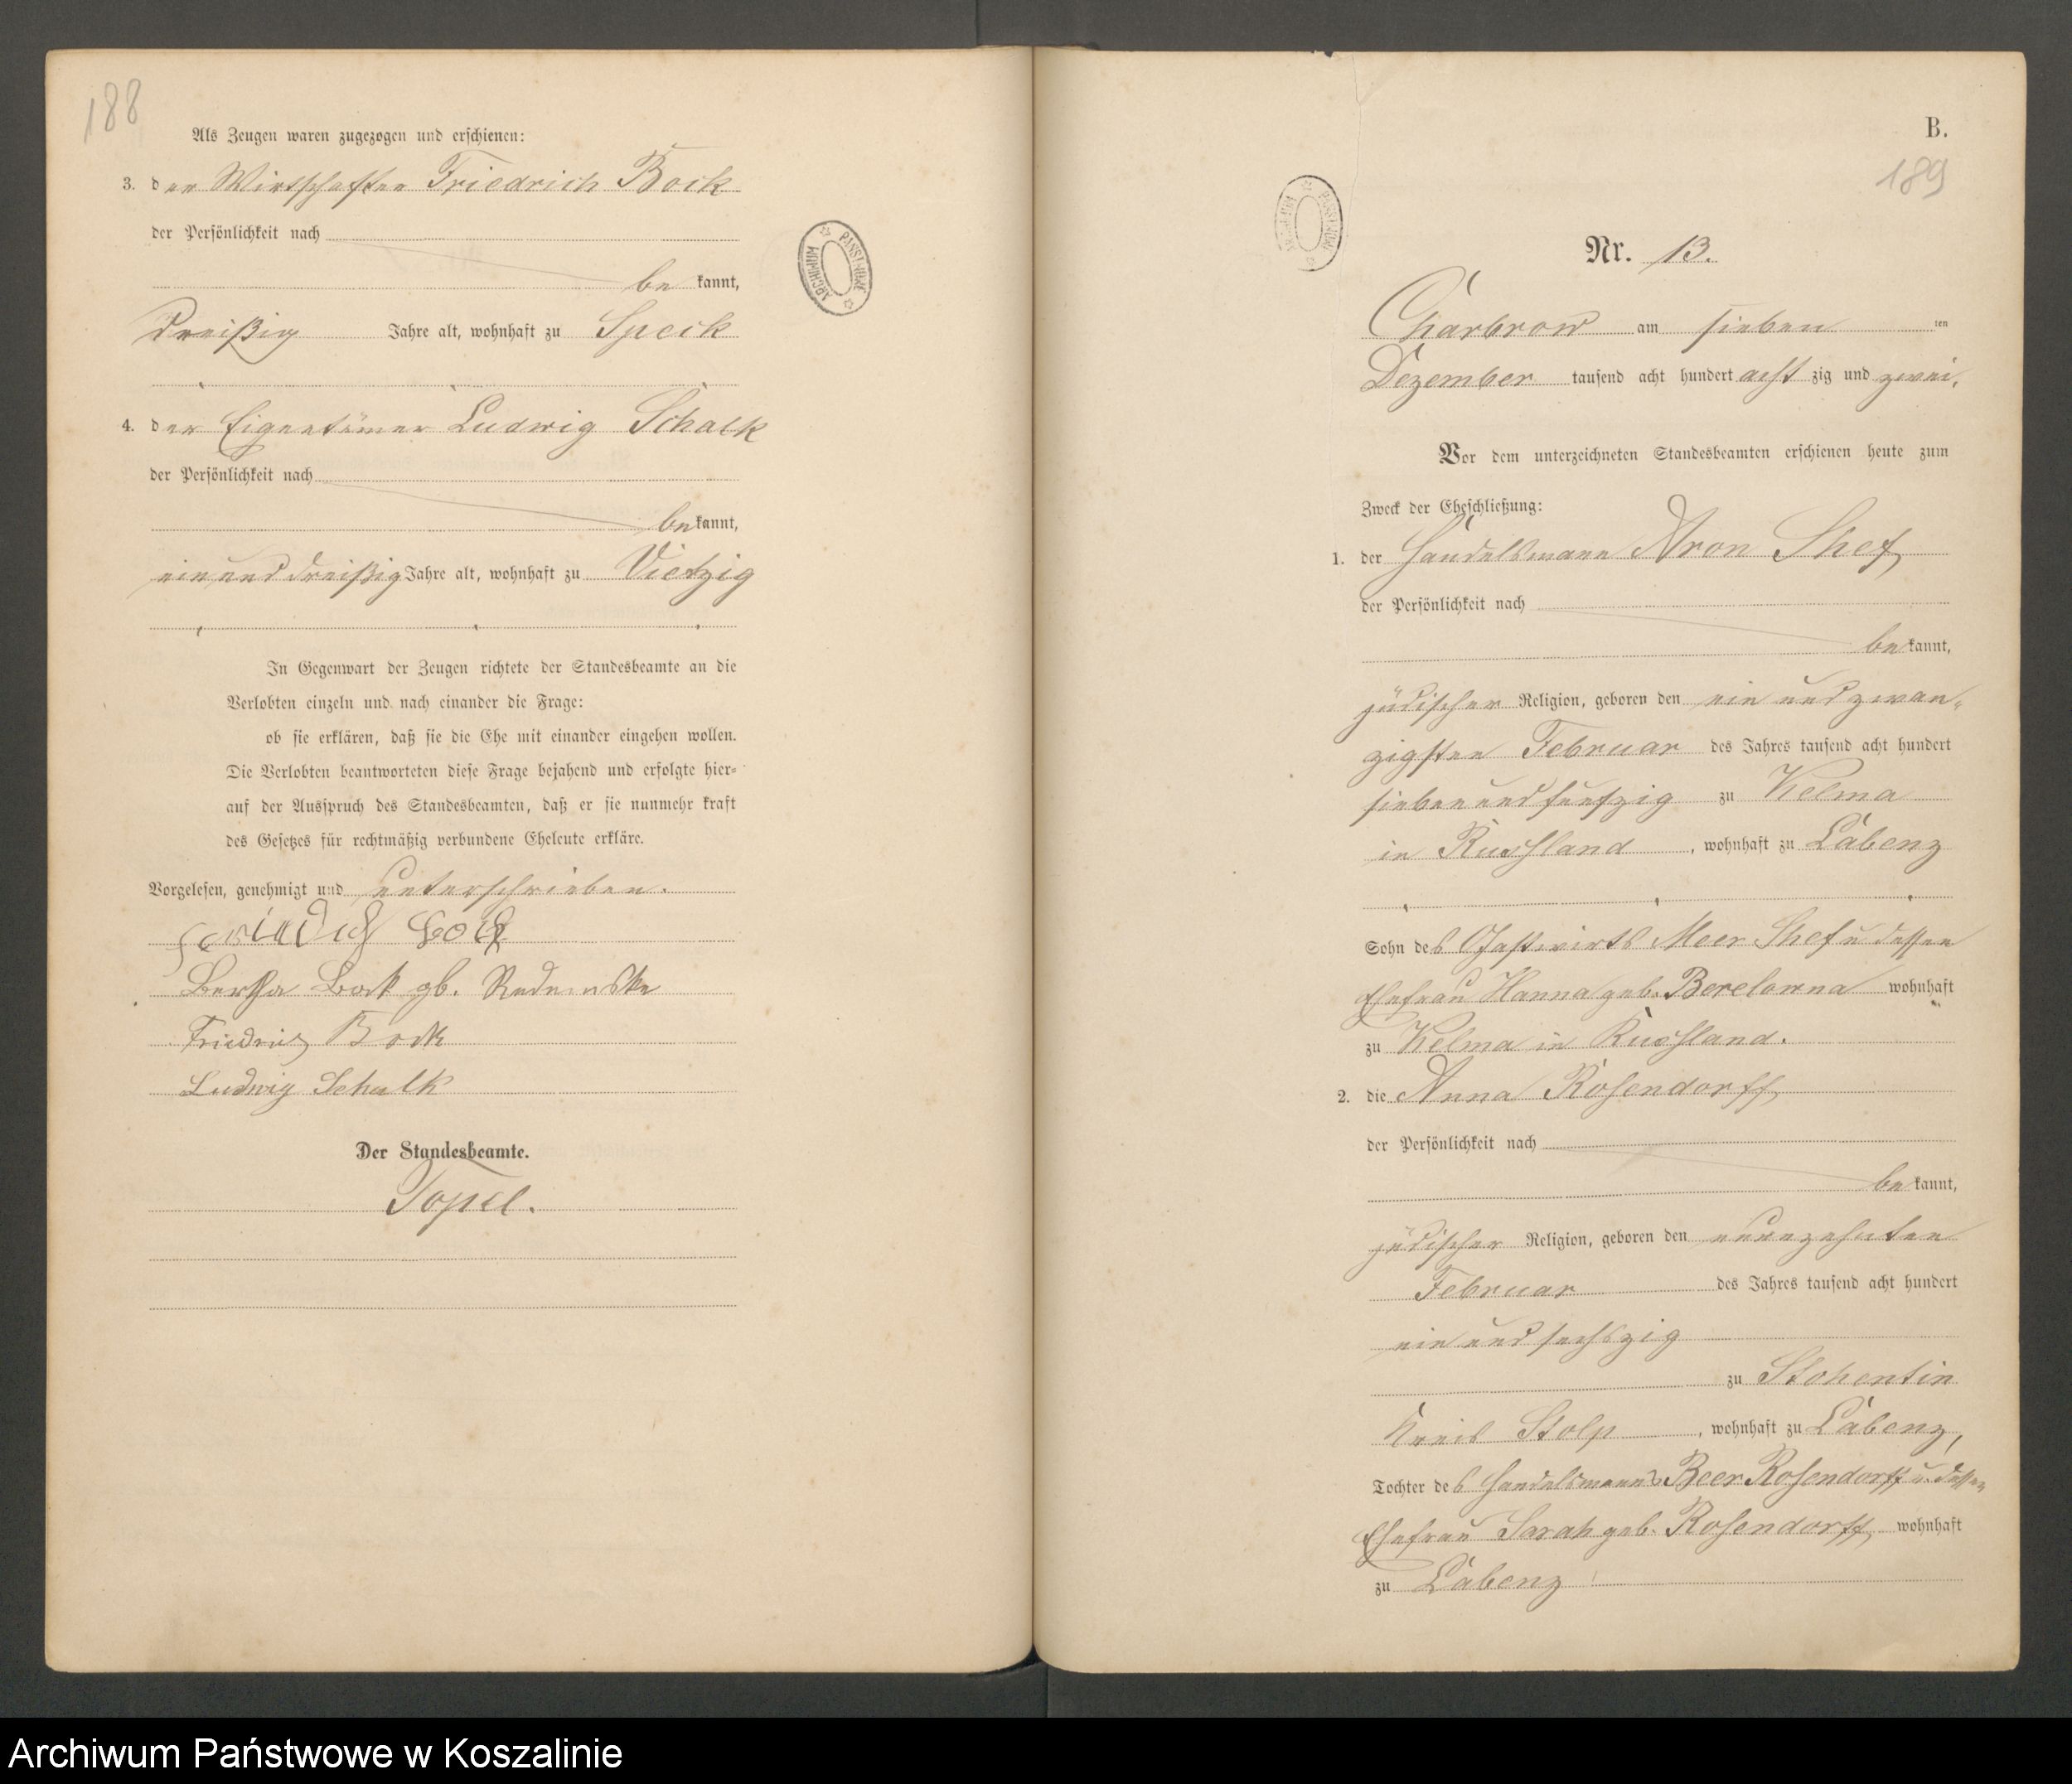 188
Als Zeugen waren zugezogen und erschienen:
3. der Wirtschafter Friedrich Bock
der Persönlichkeit nach
be kannt,
dreißig Jahre alt, wohnhaft zu Speck
4. der Eigentümer Ludwig Schalk
der Persönlichkeit nach
be kannt,
ein und dreißig Jahre alt, wohnhaft zu Vietzig
In Gegenwart der Zeugen richtete der Standesbeamte an die
Verlobten einzeln und nach einander die Frage:
ob sie erklären, daß sie die Ehe mit einander eingehen wollen.
Die Verlobten beantworteten diese Frage bejahend und erfolgte hier=
auf der Ausspruch des Standesbeamten, daß er sie nunmehr kraft
des Gesetzes für rechtmäßig verbundene Eheleute erkläre.
Vorgelesen, genehmigt und unterschrieben.
Bock
Bertha Bock gb.
Friedrich Bock
Ludwig Schalk
Der Standesbeamte.
Topel.
ARCHIWUM PAŃSTWOWE
B.
189
ARCHIWUM PAŃSTWOWE
Nr. 13.
Charbrow am sieben ten
Dezember tausend acht hundert acht zig und zwei.
Vor dem unterzeichneten Standesbeamten erschienen heute zum
Zweck der Eheschließung:
1. der Handelsmann Aron Shef
der Persönlichkeit nach
be kannt,
jüdischer Religion, geboren den ein und zwan-
zigsten Februar des Jahres tausend acht hundert
sieben und funfzig zu Kelma
in Russland, wohnhaft zu Labenz
Sohn des Gastwirts Meer Shef u dessen
Ehefrau Hanna geb. Berelowna wohnhaft
zu Kelma in Russland.
2. die Anna Rosendorff
der Persönlichkeit nach
be kannt,
jüdischer Religion, geboren den neunzehnten
Februar des Jahres tausend acht hundert
ein und sechszig
zu Stohentin
Kreis Stolp, wohnhaft zu Labenz,
Tochter des Handelsmanns Beer Rosendorff u. dessen
Ehefrau Sarah geb. Rosendorff wohnhaft
zu Labenz
Archiwum Państwowe w Koszalinie